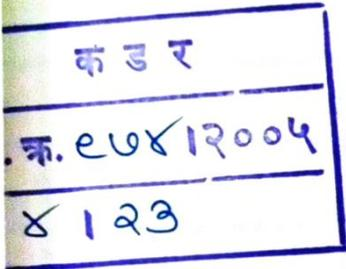 क ड र
. क्र. ९७४/२००५
४ / २३